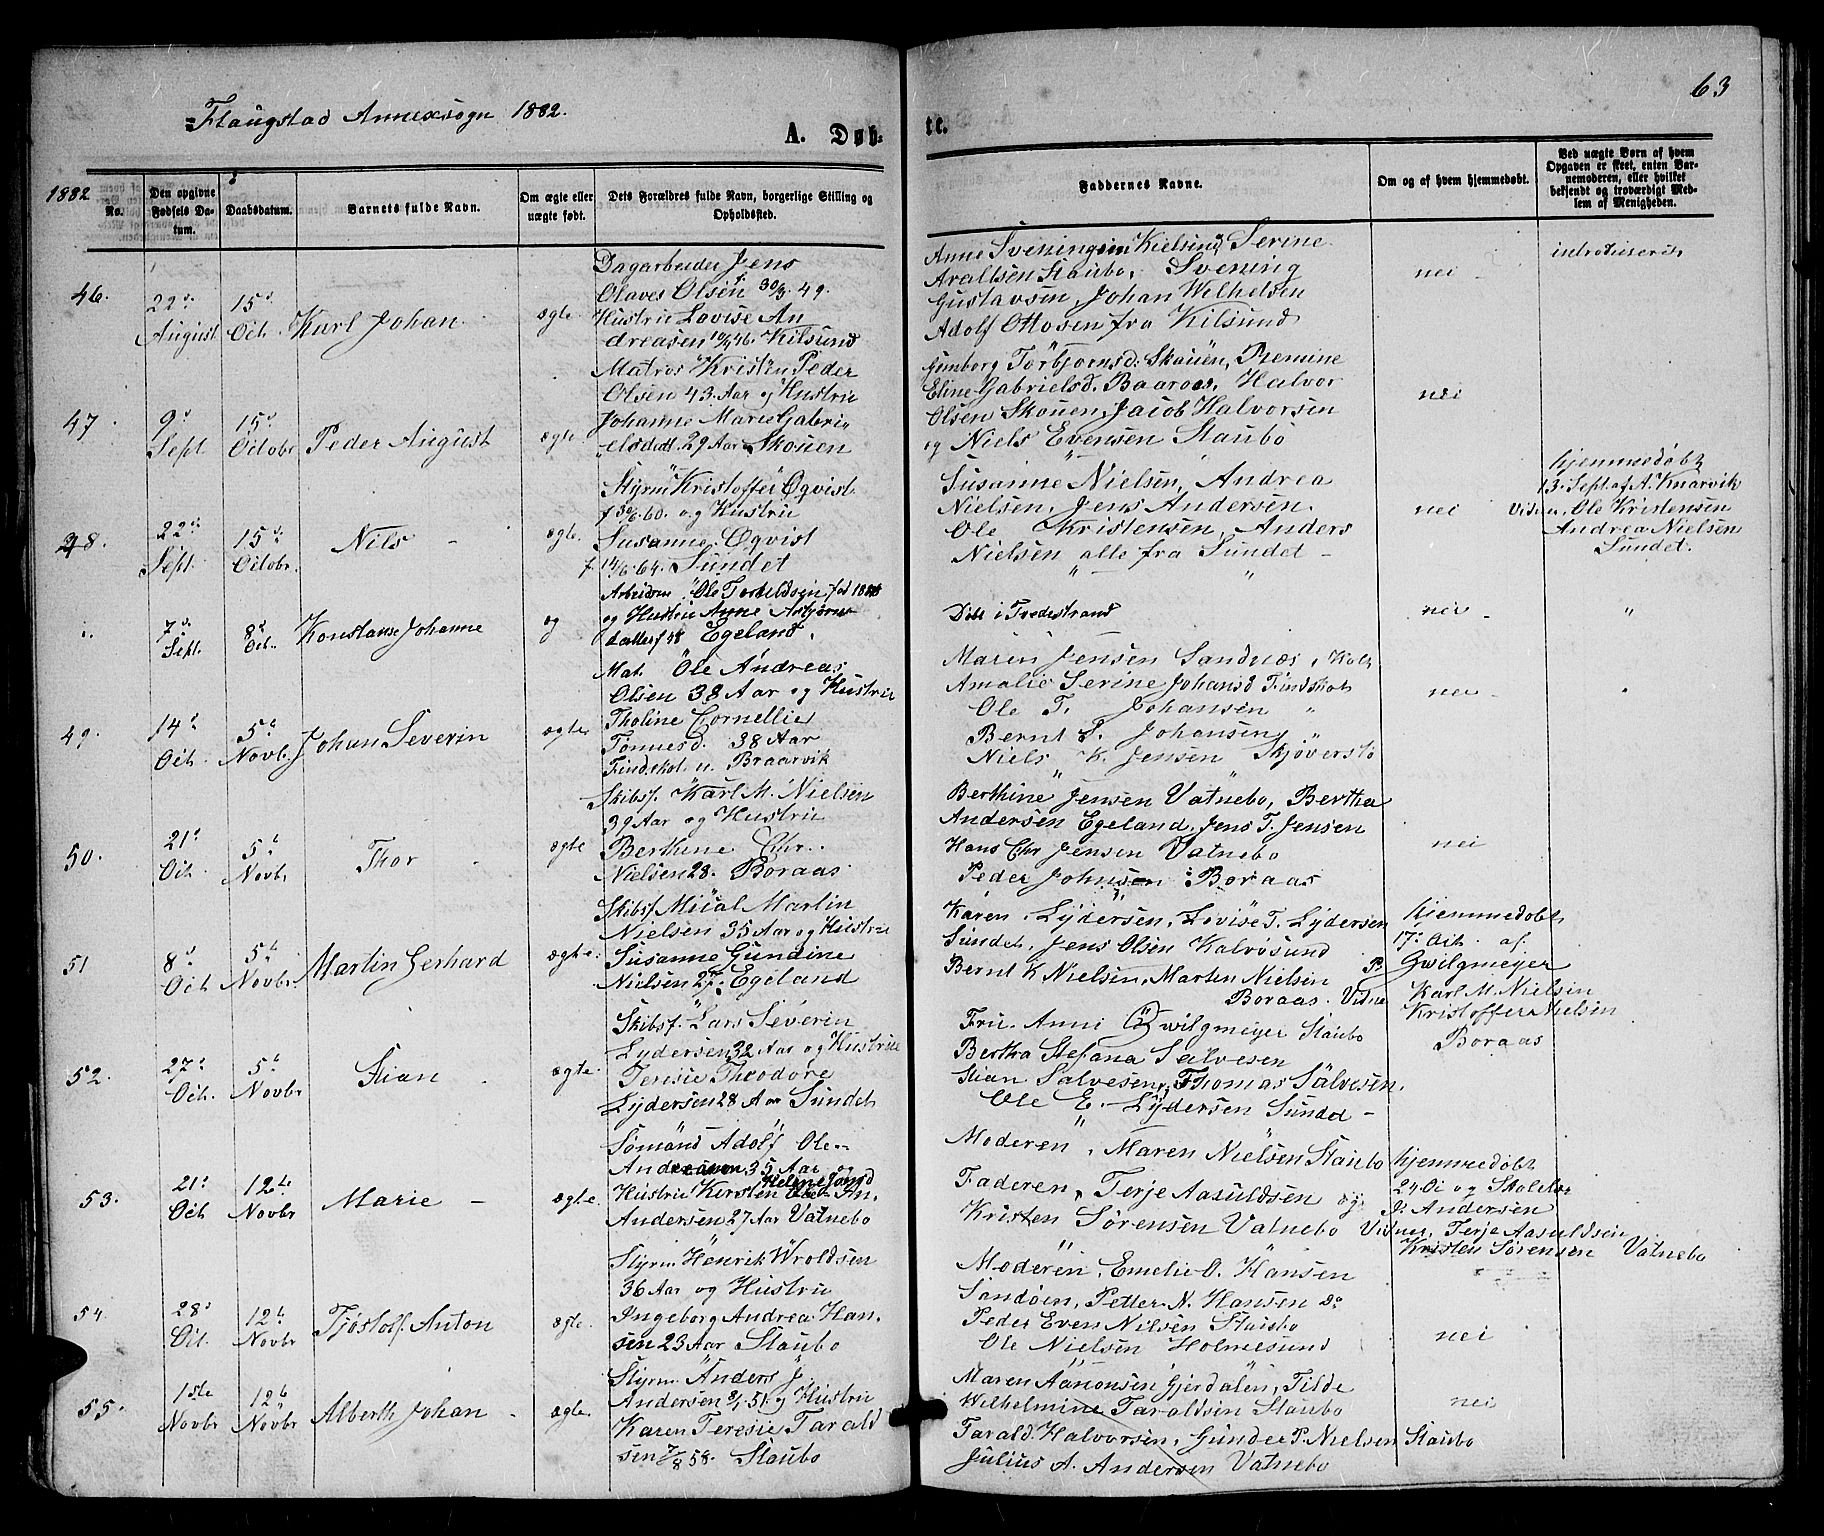 Flaugstad Annexsogn 1882.
63
A. Døb-
te.
1882
No.
Den opgivne Fødsels Da-tum.
Daabsdatum.
Barnets fulde Navn.
Om ægte eller uægte født.
Dets Forældres fulde Navn, borgerlige Stilling og Opholdsted.
Faddernes Navne.
Om og af hvem hjemmedøbt.
Ved uægte Børn af hvem Opgaven er skeet, enten Bar-nemoderen, eller hvilket bekjendt og troværdigt Med-lem af Menigheden.
46.
22d August
15d Oct.
Karl Johan
ægte.
Dagarbeider Jens
Olaves Olsen 30/3 49.
Hustru Lovise An
dreasen 10/4 46. Kilsund
Anne Kielsund, Serine
Staubo, Svening
Gustavsen, Johan Wilhelsen
Adolf Ottosen fra Kilsund
nei
introduseret
47
9d Sept
15d Octobr
Peder August
ægte.
Matros Kristen Peder
Olsen 43 Aar og Hustru
Johanne Marie Gabri
elsdatt. 29 Aar Skouen
Gunborg Torbjornsd: Skouen,
Eline Gabrielsd. Baaraas, Halvor
Olsen Skouen, Jacob Halvorsen
og Niels Evensen Staubo
nei
48.
22d Sept.
15d Octobr
Nils
ægte.
Styrm Kristoffer Qqvist
f 30/6 60. og Hustru
Susanne Qqvist
f 14/6 64. Sundet
Susanne Nielsen, Andrea
Nielsen, Jens Andersen.
Ole Kristensen, Anders
Nielsen alle fra Sundet
nei
hjemmedøbt
13. Sept. af A. Knarvik
Vidner, Ole Kristensen
Andrea Nielsen
Sundet.
7d Sept.
8d Oct.
Konstanse Johanne
og Hustru Anne
datter f 38 Egeland.
nei
"
49.
14d Oct.
5d Novb.
Johan Severin
ægte
Mat. Ole Andreas
Olsen 38 Aar og Hustru
Tholine Cornellie
Tønnesd. 38 Aar
Findskot u. Braarvik
Maren Jensen Sandnæs,
Amalie Serine Johansd Findskot
Ole T. Johansen "
Bernt S. Johansen "
Niels K. Jensen
nei
50.
21d Oct.
5d Novbr
Thor
ægte
Skibsf. Karl M. Nielsen
39 Aar og Hustru
Berthine Chr.
Nielsen 28. Boraas
Berthine Jensen Vatnebo, Bertha
Andersen Egeland, Jens T. Jensen
Hans Chr Jensen Vatnebo
Peder Johnsen Boraas
nei
51
8d Oct
5d Novbr.
Martin Gerhard
ægte.
Skibsf. Martin
Nielsen 35 Aar og Hustru
Susanne Gundine
Nielsen 27. Egeland
Karen Lydersen, Lovise T. Lydersen
Sundet, Jens Olsen Kalvøsund
Bernt K Nielsen, Marten Nielsen
Boraas. Vidne
hjemmedøbt
17. Oct. af
P. Zwilgmeyer
Karl M. Nielsen
Kristoffer Nielsen
Boraas
52.
27d Oct.
5d Novbr
Stian
ægte.
Skibsf. Lars Severin
Lydersen 32 Aar og Hustrue
Teresie Theodore
Lydersen 28 Aar Sundet
Fru. Anni Zwilgmeyer Staubo
Bertha Stefana Salvesen
Stian Salvesen, Thomas Salvesen,
Ole E. Lydersen Sundet
53.
21d Oct
12te Novbr
Marie
ægte.
Sømand Adolf Ole
Andreasen 35 Aar og
Hustru Kersten
Andersen 27 Aar Vatnebo
Moderen, Maren Nielsen Staubo
Faderen, Terje Aasuldsen og
Kristen Sørensen Vatnebo
hjemmedøbt
P. Andersen
Vidner, Terje Aasuldsen
Kristen Sørensen Vatnebo
54.
28d Oct.
12te Novbr
Tjøstolf Anton
ægte.
Styrm Henrik Wroldsen
36 Aar og Hustru
Ingeborg Andrea Han
sen 23 Aar Staubo
Moderen, Emelie O. Hansen
Sandøen, Petter N. Hansen do
Peder Even Nilsen Staubo
Ole Nielsen Holmesund
nei
55.
1ste Novbr
12te Novbr
Alberth Johan
ægte.
Styrm Anders J.
Andersen 8/1 51. og Hustru
Karen Teresie Tarald
sen 7/8 58. Staubo
Maren Aanonsen Gjerdalen, Tilde
Wilhelmine Taraldsen Staubo
Tarald Halvorsen, Gunder P. Nielsen Staubo
Julius A. Andersen Vatnebo
nei